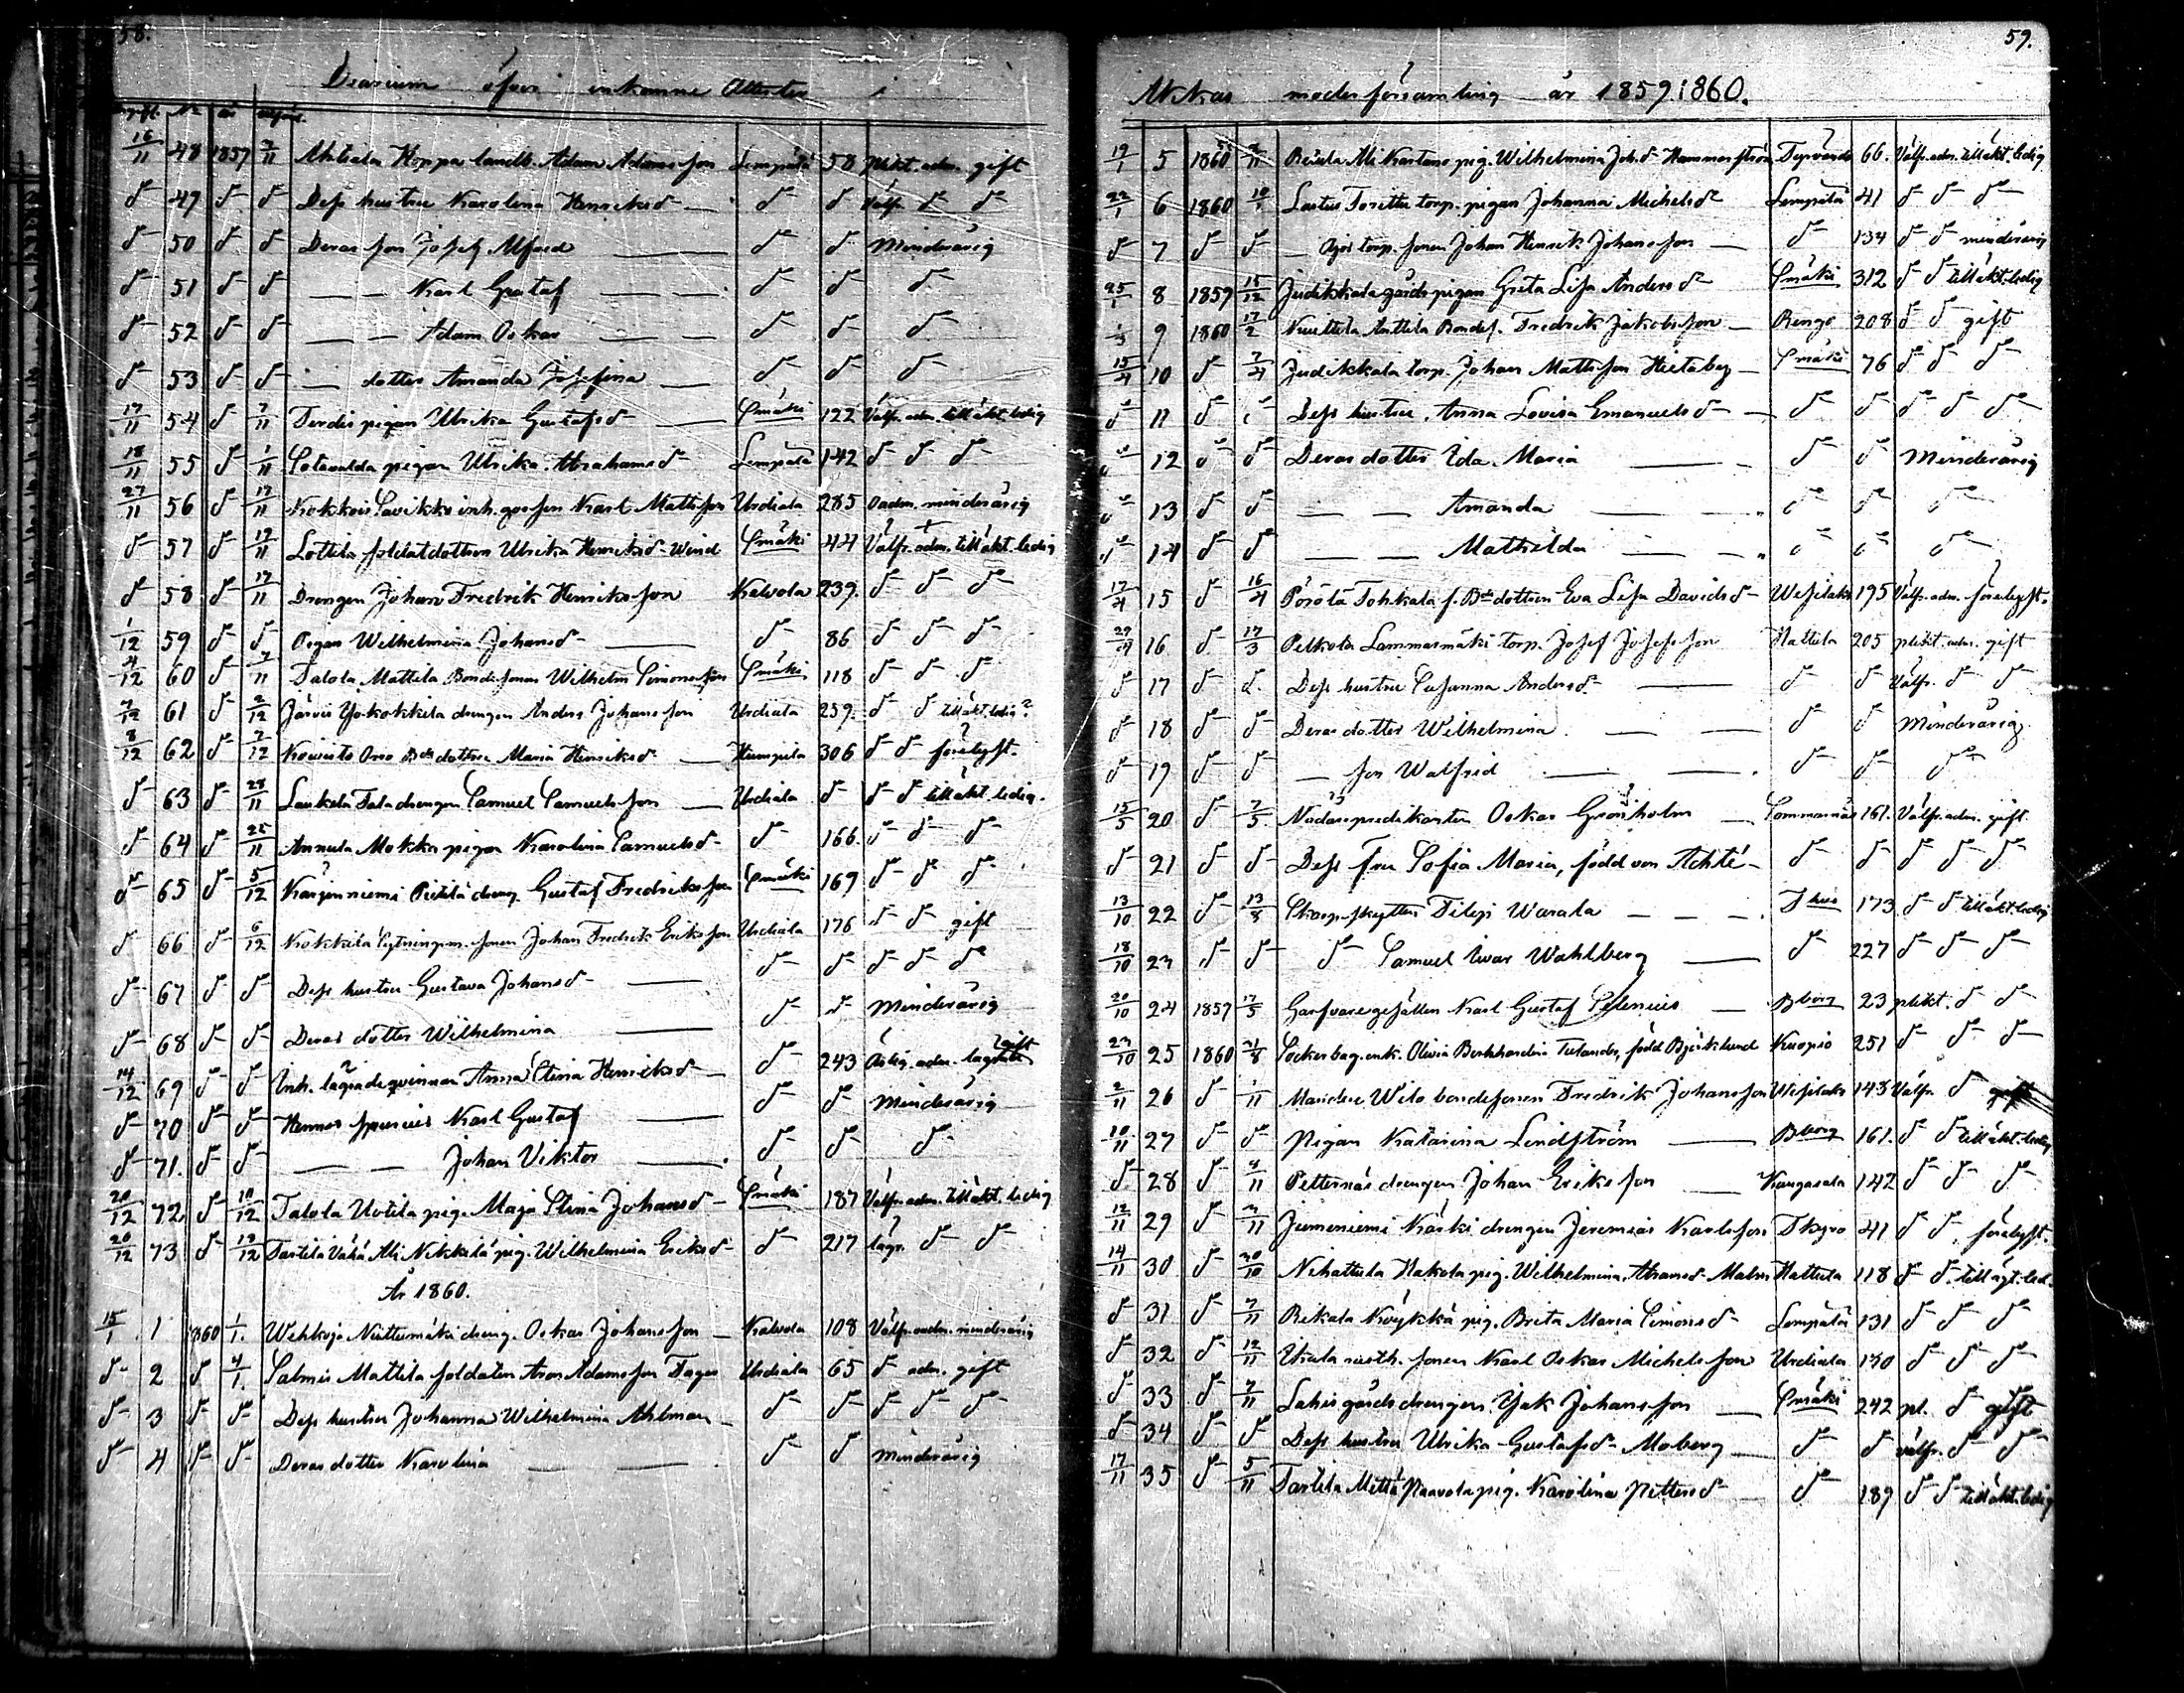 58.
Diarium öfver inkomne Attester i
16/11 48 1859 7/11 Ahtiala Hoppa landb. Adam Adamsson Lempälä 58 plikt. adm. gift
d:o 49 d:o d:o Dess hustru Karolina Henriksd:r d:o d:o välfr. d:o d:o
d:o 50 d:o d:o Deras son Josef Alfred d:o d:o Minderårig
d:o 51 d:o d:o — — Karl Gustaf d:o d:o d:o
d:o 52 d:o d:o — — Adam Oskar d:o d:o d:o
d:o 53 d:o d:o — dotter Amanda Josefina d:o d:o d:o
17/11 54 d:o 7/11 pigan Ulrika Gustafsd:r Smäki 122 Välfr. adm. till äkt. ledig
18/11 55 d:o 1/11 Sotavalda pigan Ulrika Abrahamsd:r Lempälä 142 d:o d:o d:o
27/11 56 d:o 17/11 Kokkois Lavikko inh. gosson Karl Mattsson Urdiala 285 Oadm. minderårig
d:o 57 d:o 19/11 Lottila soldatdottren Ulrika Henriksd:r Wind Smäki 44 Välfr. adm. till äkt. ledig
d:o 58 d:o 17/11 Drengen Johan Fredrik Henriksson Kalvola 239. d:o d:o d:o
1/12 59 d:o d:o Pigan Wilhelmina Johansd:r d:o 86 d:o d:o d:o
4/12 60 d:o 7/11 Talola Mattila Bondesonen Wilhelm Simonsson Smäki 118 d:o d:o d:o
7/12 61 d:o 2/12 Järvis Yokokkila drengen Anders Johansson Urdiala 259. d:o d:o till äkt. ledig
8/12 62 d:o 7/12 Koivisto Orro Bde dottren Maria Henriksd:r Humpila 306 d:o d:o förelyst.
d:o 63 d:o 28/11 Laukela Tala drengen Samuel Samuelsson Urdiala d:o d:o d:o till äkt. ledig.
d:o 64 d:o 25/11 Annula Mokka pigan Karolina Samuelsd:r d:o 166. d:o d:o d:o
d:o 65 d:o 5/12 Karjenniemi Pietilä dreng Gustaf Fredriksson Smäki 169 d:o d:o d:o
d:o 66 d:o 6/12 Kokkila Sytningsm. sonen Johan Fredrik Eriksson Urdiala 176 d:o d:o gift
d:o 67 d:o d:o Dess hustru Gustava Johansd:r d:o d:o d:o d:o d:o
d:o 68 d:o d:o Deras dotter Wilhelmina d:o d:o Minderårig
14/12 69 d:o d:o Inh. lägradeqvinnan Anna Stina Henriksd:r d:o 243 adm. gift
d:o 70 d:o d:o Hennes spurius Karl Gustaf d:o d:o Minderårig
d:o 71. d:o d:o — — Johan Viktor d:o d:o d:o
20/12 72 d:o 18/12 Talola Uotila pig. Maja Stina Johansd:r Smäki 187 Välfr. adm. till äkt. ledig
20/12 73 d:o 19/12 Tarttila Vähä Ali Nikkilä pig. Wilhelmina Eriksd:r d:o 217 lägr. d:o d:o
År 1860.
15/1 1 1860 1/1. Wehkoja Niittumäki dreng. Oskar Johansson Kalvola 108 Välfr. oadm. minderårig
d:o 2 d:o 4/1. Salmis Mattila soldaten Aron Adamsson Urdiala 65 d:o adm. gift
d:o 3 d:o d:o Dess hustru Johanna Wilhelmina Ahlman d:o d:o d:o d:o d:o
d:o 4 d:o d:o Deras dotter Karolina d:o d:o minderårig
59.
Akkas moderförsamling år 1859. 1860.
19/1 5 1860 Ali Kartano pig. Wilhelmina Joh.d:r Hammarström 66. Välfr. adm. till äkt. ledig
22/1 6 1860 torp. pigan Johanna Michelsd:r Lempälä 41 d:o d:o d:o
d:o 7 d:o d:o — torp. sonen Johan Henrik Johansson d:o 134 d:o d:o minderårig
25/1 8 1859 15/12 Judikkala gårds pigan Greta Lisa Andersd:r Smäki 312 d:o d:o till äkt. ledig
9 1860 17/2 Anttila Bondes. Fredrik Jakobsson Rengo 208 d:o d:o gift
15/4 10 d:o 7/4 Judikkala torp. Johan Mattsson Hietaberg Smäki 76 d:o d:o d:o
d:o 11 d:o d:o Dess hustru Anna Lovisa Emanuelsd:r d:o d:o d:o d:o d:o
d:o 12 d:o d:o Deras dotter Ida Maria d:o d:o Minderårig
d:o 13 d:o d:o — — Amanda d:o d:o d:o
d:o 14 d:o d:o — — Mathilda d:o d:o d:o
17/4 15 d:o 16/4 Pörölä Tohkala f. Bde dottren Eva Lisa Davidsd:r Wesilaks 195 Välfr. adm. förelyst.
29/4 16 d:o 17/3 Pelkola Lammasmäki torp. Josef Josefsson Hattula 205 plikt. adm. gift
d:o 17 d:o d:o Dess hustru Susanna Andersd:r d:o d:o Välfr. d:o d:o
d:o 18 d:o d:o Deras dotter Wilhelmina d:o d:o Minderårig
d:o 19 d:o d:o — son Walfrid d:o d:o d:o
15/5 20 d:o 7/5. Nådårspredikanten Oskar Grönholm Sommarnäs 161. Välfr. adm. gift
d:o 21 d:o d:o Dess fru Sofia Maria, född von Achté d:o d:o d:o d:o d:o
13/10 22 d:o 13/8 Skarpskytten Filip Warala Thus 173 d:o d:o till äkt. ledig
18/10 23 d:o d:o d:o Samuel Iwar Wahlberg d:o 227 d:o d:o d:o
20/10 24 1859 17/5 Garfvaregesällen Karl Gustaf Selenius Bborg 23 plikt. d:o d:o
23/10 25 1860 21/8 Sockerbag. enk. Olivia Bernhardina Tulander, född Björklund Kuopio 251 d:o d:o d:o
2/11 26 d:o 1/11 Wilo bondesonen Fredrik Johansson Wesilaks 143 Välfr. d:o gift
10/11 27 d:o d:o Pigan Katarina Lindström Bborg 161. d:o d:o till äkt. ledig
d:o 28 d:o 4/11 drengen Johan Eriksson Kangasala 142 d:o d:o d:o
12/11 29 d:o 2/11 Jumoniemi Käski drengen Jeremias Karlsson Tkyro 41 d:o d:o förelyst.
14/11 30 d:o 20/10 Nihattula Hakola pig. Wilhelmina Malm Hattula 118 d:o d:o till ägt. led.
d:o 31 d:o 7/11 Rekala Köykkä pig. Brita Maria Simonsd:r Lempälä 131 d:o d:o d:o
d:o 32 d:o 12/11 Ukula rusth. sonen Karl Oskar Michelsson Urdiala 130 d:o d:o d:o
d:o 33 d:o 7/11 Lahis gårds drengen Isak Johansson Smäki 242 pl. d:o gift
d:o 34 d:o d:o Dess hustru Ulrika Gustafsd:r Moberg d:o d:o välfr. d:o d:o
17/11 35 d:o 5/11 Tarttila Mattä Paavola pig. Karolina Pettersd:r d:o 189 d:o d:o till äkt. ledig